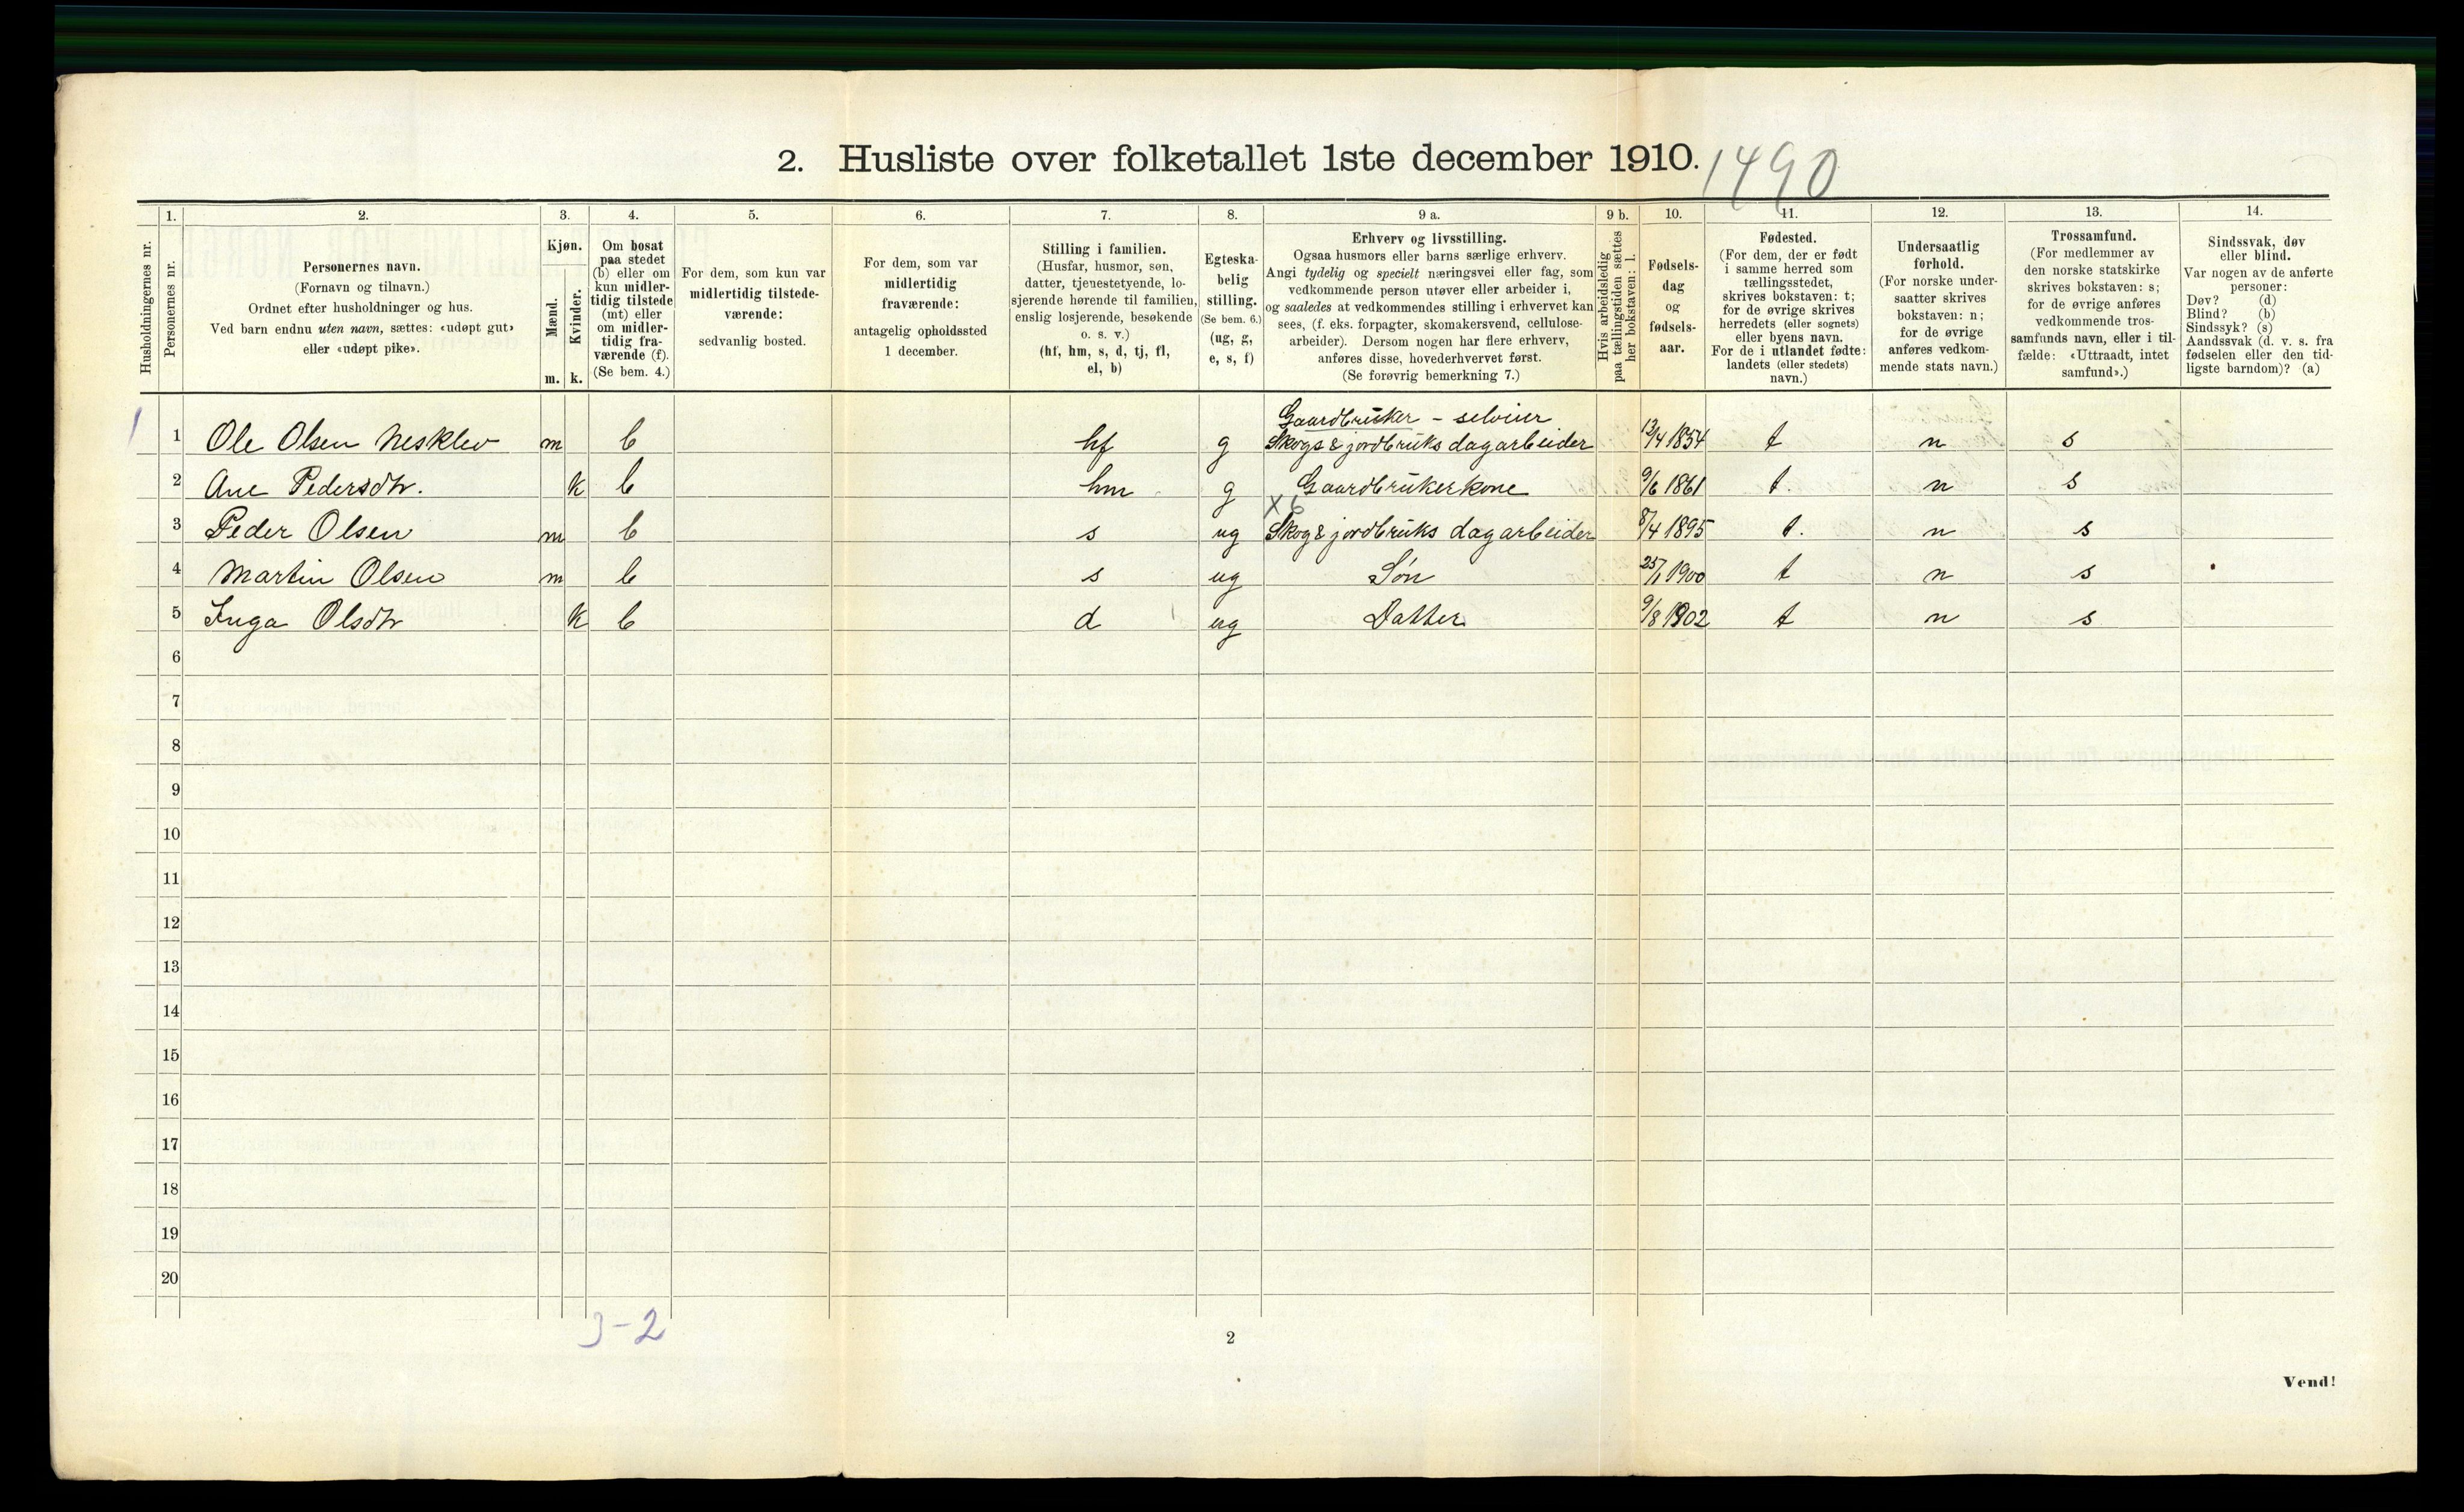 2. Husliste over folketallet 1ste december 1910. 1490
1. 2. 3. 4. 5. 6. 7. 8. 9 a. 9 b. 10. 11. 12. 13. 14.
Husholdningernes nr.
Personernes nr.
Personernes navn.
(Fornavn og tilnavn.)
Ordnet efter husholdninger og hus.
Ved barn endnu uten navn, sættes: «udøpt gut»
eller «udøpt pike».
Kjøn.
Mænd.
Kvinder.
m. k.
Om bosat
paa stedet
(b) eller om
kun midler-
tidig tilstede
(mt) eller
om midler-
tidig fra-
værende (f).
(Se bem. 4.)
For dem, som kun var
midlertidig tilstede-
værende:
sedvanlig bosted.
For dem, som var
midlertidig
fraværende:
antagelig opholdssted
1 december.
Stilling i familien.
(Husfar, husmor, søn,
datter, tjenestetyende, lo-
sjerende hørende til familien,
enslig losjerende, besøkende
o. s. v.)
(hf, hm, s, d, tj, fl,
el, b)
Egteska-
belig
stilling.
(Se bem. 6.)
(ug, g,
e, s, f)
Erhverv og livsstilling.
Ogsaa husmors eller barns særlige erhverv.
Angi tydelig og specielt næringsvei eller fag, som
vedkommende person utøver eller arbeider i,
og saaledes at vedkommendes stilling i erhvervet kan
sees, (f. eks. forpagter, skomakersvend, cellulose-
arbeider). Dersom nogen har flere erhverv,
anføres disse, hovederhvervet først.
(Se forøvrig bemerkning 7.)
Hvis arbeidsledig
paa tællingstiden sættes
her bokstaven: l.
Fødsels-
dag
og
fødsels-
aar.
Fødested.
(For dem, der er født
i samme herred som
tællingsstedet,
skrives bokstaven: t;
for de øvrige skrives
herredets (eller sognets)
eller byens navn.
For de i utlandet fødte:
landets (eller stedets)
navn.)
Undersaatlig
forhold.
(For norske under-
saatter skrives
bokstaven: n;
for de øvrige
anføres vedkom-
mende stats navn.)
Trossamfund.
(For medlemmer av
den norske statskirke
skrives bokstaven: s;
for de øvrige anføres
vedkommende tros-
samfunds navn, eller i til-
fælde: «Uttraadt, intet
samfund».)
Sindssvak, døv
eller blind.
Var nogen av de anførte
personer:
Døv? (d)
Blind? (b)
Sindssyk? (s)
Aandssvak (d. v. s. fra
fødselen eller den tid-
ligste barndom)? (a)
Gaardbruker - selveier
1 1 Ole Olsen Nesklev m b hf g Skogs & jordbruks dagarbeider 12/4 1854 t n s
2 Ane Pedersdtr. k b hm g Gaardbrukerkone 9/6 1861 t. n s
X6
3 Peder Olsen m b s ug Skog & jordbruks dagarbeider 8/4 1895 t. n s
4 Martin Olsen m b s ug Søn 25/1 1900 t n s
5 Inga Olsdtr k b d ug Datter 9/8 1902 t n s
6
7
8
9
10
11
12
13
14
15
16
17
18
19
20
3-2
2
Vend!